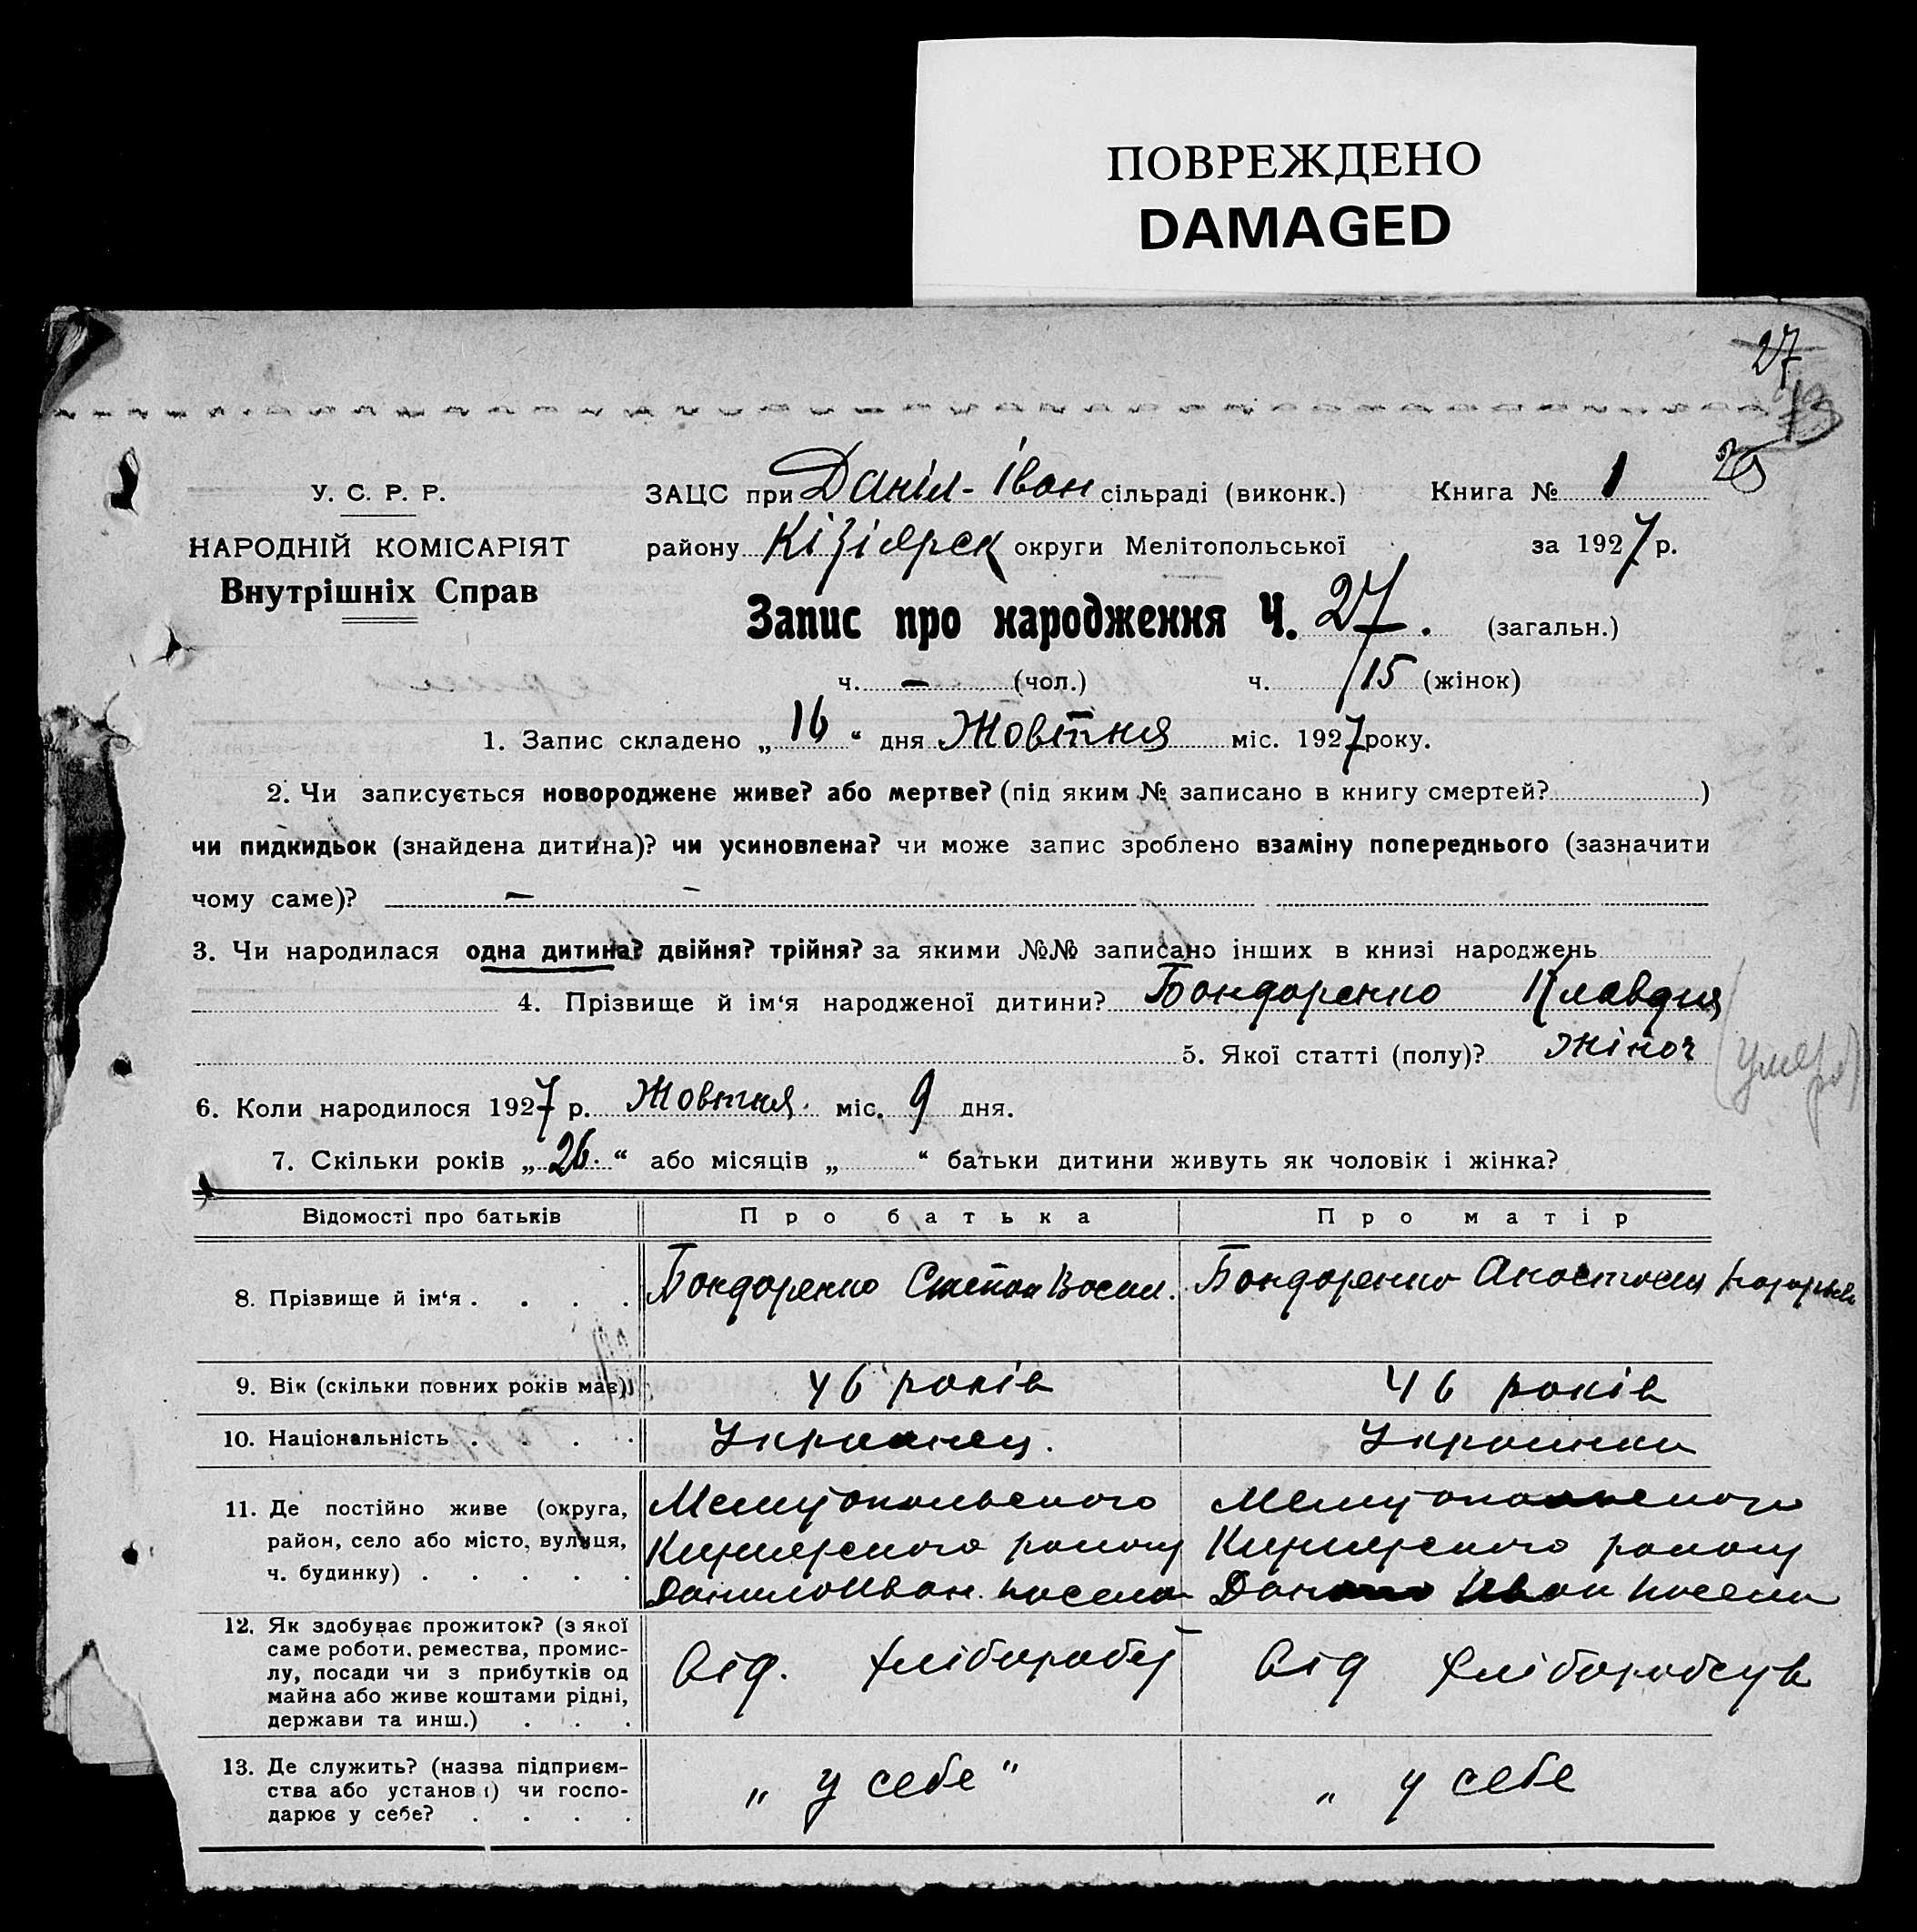 ПОВРЕЖДЕНО
DAMAGED
27
У. С. Р. Р.
НАРОДНІЙ КОМІСАРІЯТ
Внутрішніх Справ
ЗАЦС при Даніл-Іван сільраді (виконк.) Книга № 1
району Кізіярск округи Мелітопольської за 1927 р.
Запис про народження Ч. 27. (загальн.)
ч. — (чол.) ч. 15 (жінок)
1. Запис складено „16“ дня Жовтня міс. 1927 року.
2. Чи записується новороджене живе? або мертве? (під яким № записано в книгу смертей? )
чи пидкидьок (знайдена дитина)? чи усиновлена? чи може запис зроблено взаміну попереднього (зазначити
чому саме)? — –
3. Чи народилася одна дитина? двійня? трійня? за якими №№ записано інших в книзі народжень
4. Прізвище й ім‘я народженої дитини? Бондаренко Клавдия
5. Якої статті (полу)? жіноч
(умер
ла)
6. Коли народилося 1927 р. Жовтня міс. 9 дня.
7. Скільки років „26.“ або місяців „ “ батьки дитини живуть як чоловік і жінка?
Відомості про батьків Про батька Про матір
8. Прізвище й ім‘я . . . . Бондаренко Степан Васил. Бондаренко Анастасия
9. Вік (скільки повних років має) 46 років 46 років
10. Національність . . . . Украинец. Украинка
11. Де постійно живе (округа,
район, село або місто, вулиця,
ч. будинку) . . . . .
Мелитопольского
Кизиярского району
Данило Иван. посела
Мелитопольского
Кизиярского району
Данило Иван посела
12. Як здобуває прожиток? (з якої
саме роботи, ремества, промис-
лу, посади чи з прибутків од
майна або живе коштами рідні,
держави та инш.) . . .
Від. хлібороб
Від
13. Де служить? (назва підприєм-
ства або установи) чи госпо-
дарює у себе? . . . .
„ у себе “
„ у себе